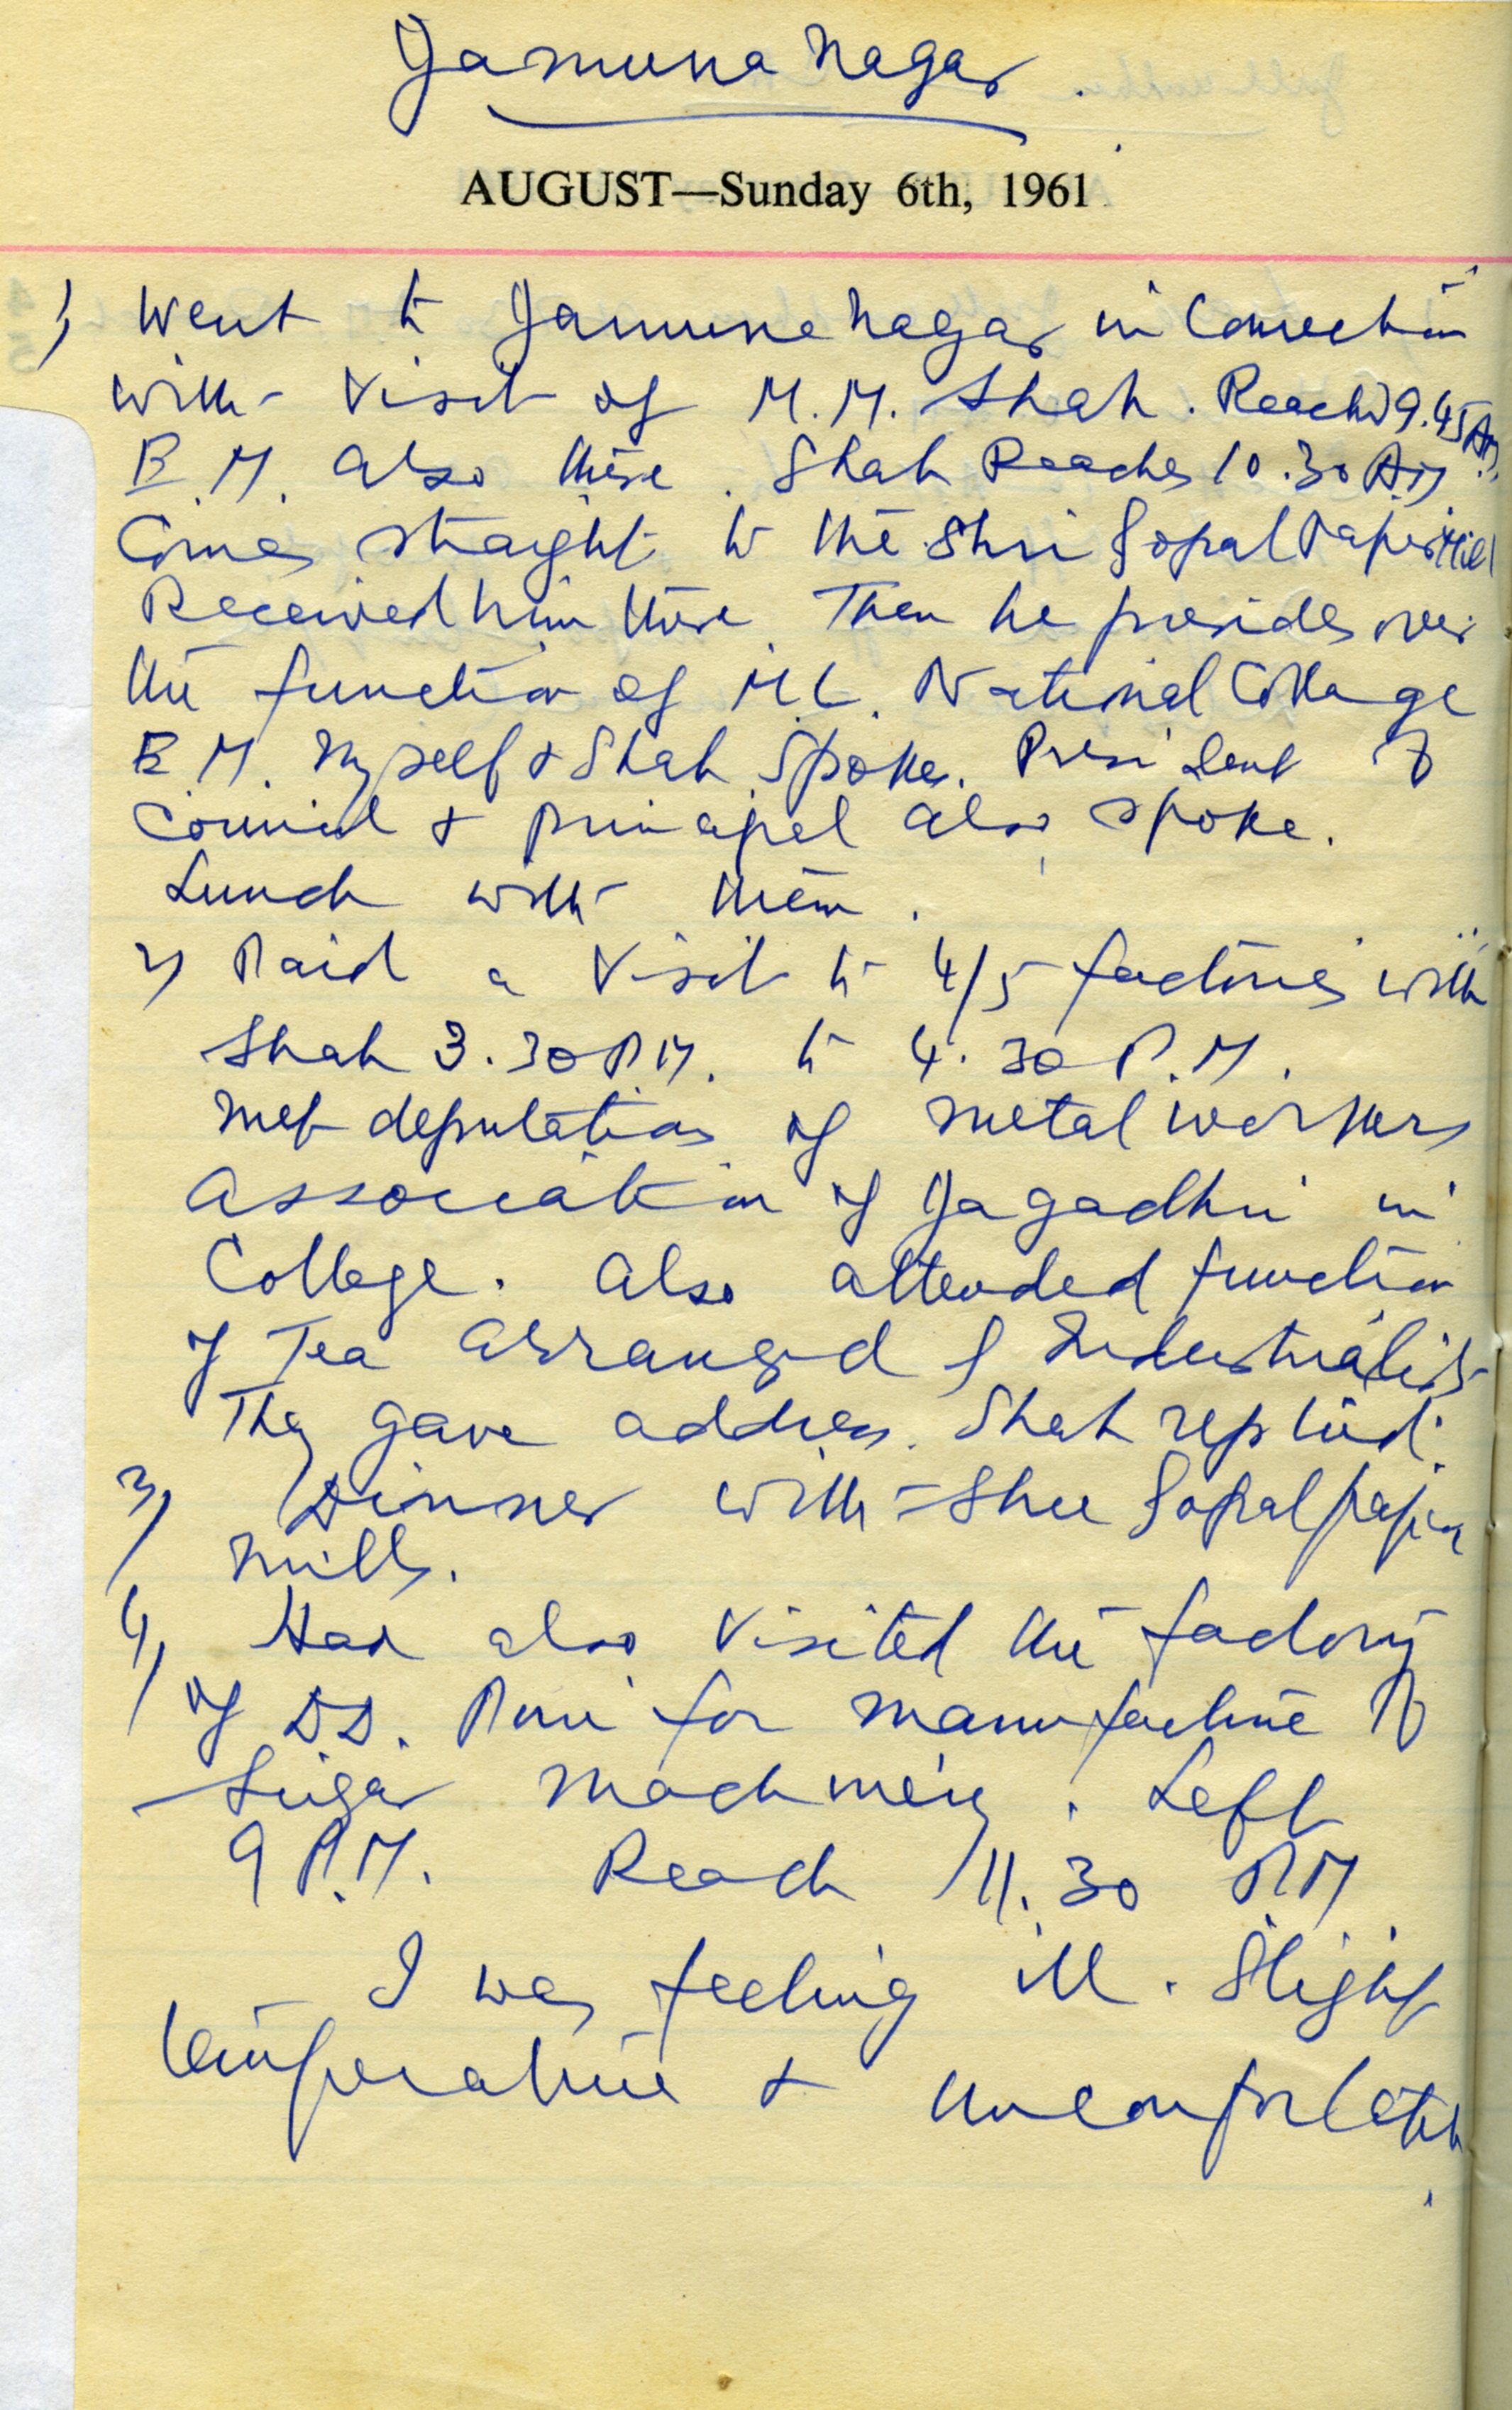 Jamuna Nagar
AUGUST—Sunday 6th, 1961
1) Went to Jamuna Nagar in Connection
with Visit of M.M. Shah. Reached 9.45 AM.
B.M. also there. Shah Reaches 10.30 AM
Comes straight to the Shri Gopal Paper Mill
Received him there. Then he presides over
the function of M.L. National College
B.M. Myself & Shah Spoke. President of
Council & principal also spoke.
Lunch with them.
2) Paid a Visit to 4/5 factories with
Shah 3.30 P.M. to 4.30 P.M.
Met deputation of metal workers
Association of Jagadhri in
College. Also attended function
of Tea arranged of Industrialists
They gave address. Shah replied.
3) Dinner with Shree Gopal paper
mills.
4) Had also Visited the factory
of D.D. Puri for manufacture of
Sugar machinery. Left
9 P.M. Reach 11.30 PM
I was feeling ill. Slight
temperature & uncomfortable